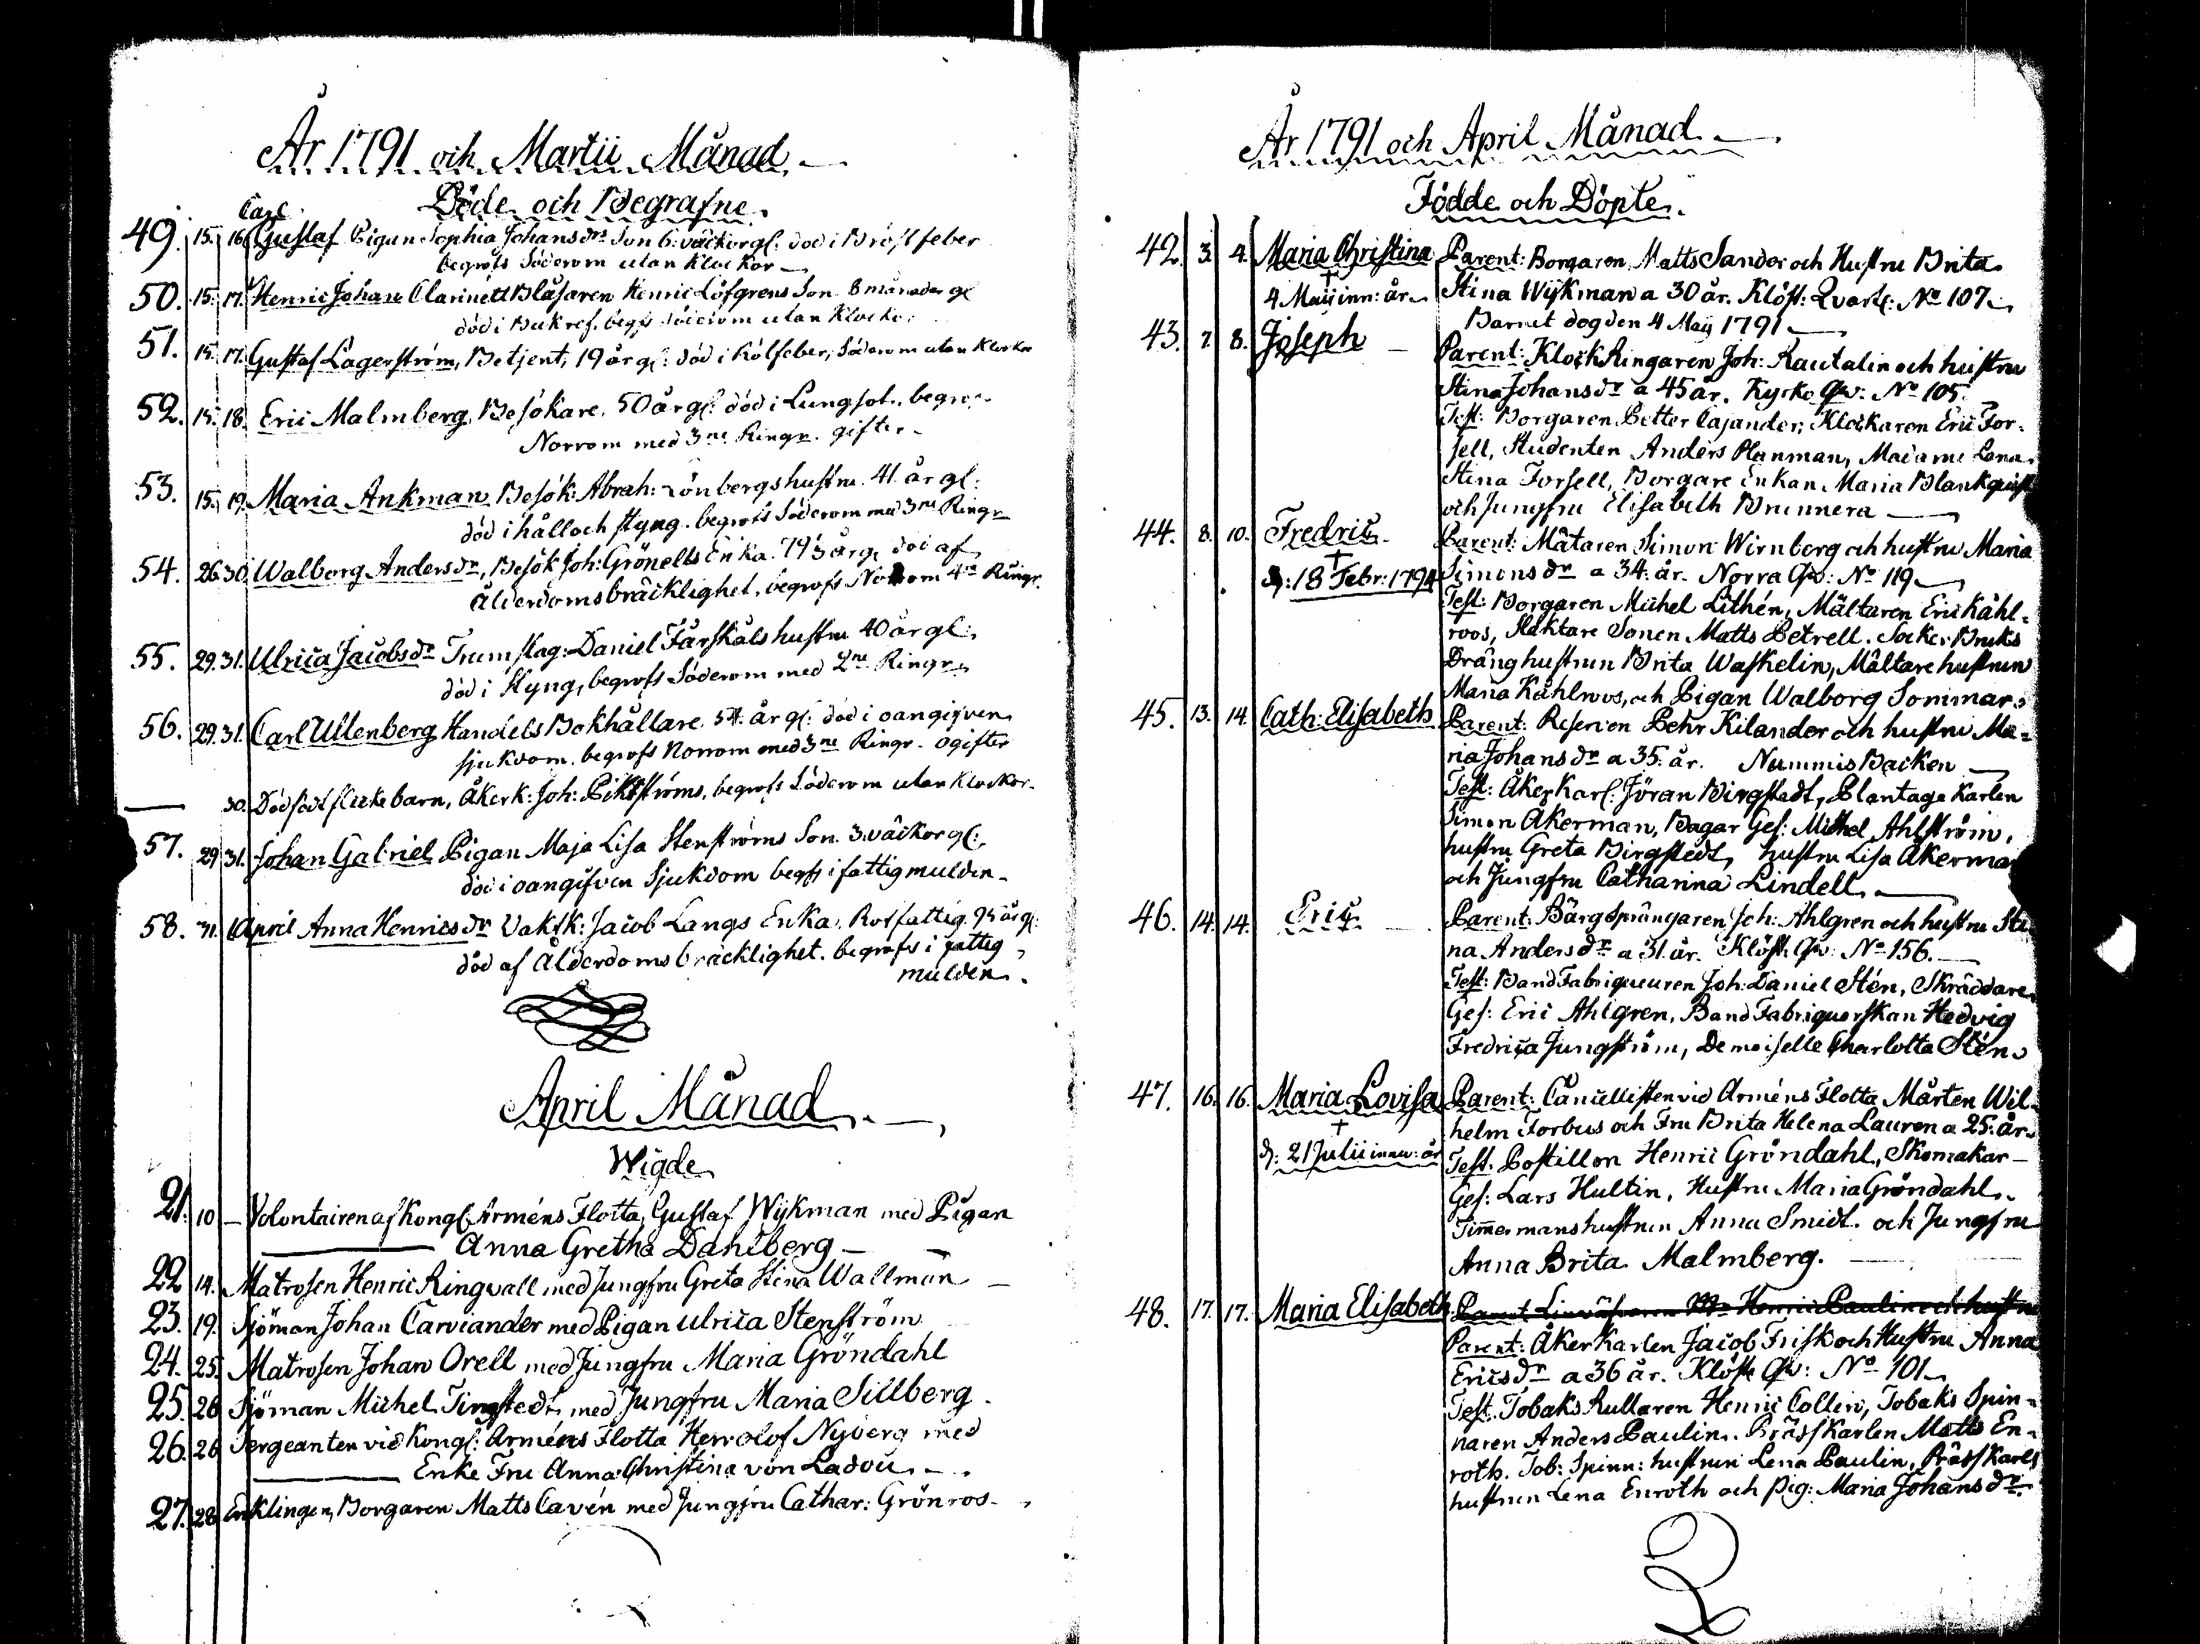 År 1791 och Martii Månad.
Döde och Begrafne.
Carl
49. 15. 16. Gustaf Pigan Sophia Johansdr Son 6 väckor gl: död i Bröstfeber
begrofs Söderom utan Klockor
50. 15. 17. Henric Johan Clarinett Blåsaren Henric Löfgrens Son 8 månader gl
död i begfs Söderom utan Klockor
51. 15. 17. Gustaf Lagerström, Betjent, 19 år gl: död i Rötfeber, Söderom utan Klockor
52. 15. 18. Eric Malmberg, Besökare, 50 år gl: död i Lungsot, begrofs
Norrom med 3ne Ringr. gifter
53. 15. 19. Maria Ankman, Besök: Abrah: Lönbergs hustru 41 år gl:
död i håll och styng. begrofs Söderom med 3ne Ringr
54. 26. 30. Walborg Andersdr, Besök Joh: Grönells Enka. 79 år gl död af
Ålderdomsbräcklighet, begrofs Norrom 4ra Ringr.
55. 29. 31. Ulrica Jacobsdr Trumslag: Daniel Fårskåls hustru 40 år gl:
död i Styng, begrofs Söderom med 2ne Ringr.
56. 29. 31. Carl Ullenberg Handels Bokhållare 54 år gl: död i oangifven
sjukdom. begrofs Norrom med 3ne Ringr. ogifter
30. Dödfödt flickebarn, Åkerk: Joh: begrofs Söderom utan Klockor.
57. 29. 31. Johan Gabriel Pigan Maja Lisa Stenströms Son. 3 väckor gl:
död i oangifven Sjukdom begfs i fattigmulden
58. 31. 1 April Anna Henricsdr Vaktk: Jacob Langs Enka. Rotfattig. 95 år gl:
död af Ålderdomsbräcklighet. begrofs i fattig
mulden.
April Månad.
Wigde
21. 10 Volontairen af Kongl: Arméns Flotta, Gustaf Wijkman med Pigan
Anna Gretha Dahlberg
22 14. Matrosen Henric Ringvall med Jungfru Greta Stina Wallman
23. 19. Sjöman Johan Carviander med Pigan Ulrica Stenström
24. 25. Matrosen Johan Orell med Jungfru Maria Gröndahl
25. 26 Sjöman Michel Tingstedt med Jungfru Maria Sillberg
26. 26 Sergeanten vid Kongl: Arméns Flotta Herr Olof Nyberg med
Enke Fru Anna Christina von Ladou.
27. 28 Enklingen, Borgaren Matts Cavén med Jungfru Cathar: Grönros
År 1791 och April Månad.
Födde och Döpte.
42. 3. 4. Maria Christina Parent: Borgaren Matts Sander och Hustru Brita
4 Maij inn: år. Stina Wijkman a 30 år. Klöst: Qvart: No 107.
Barnet dog den 4 Maij 1791
43. 7. 8. Joseph Parent: KlockRingaren Joh: Rautalin och hustru
Stina Johansdr a 45 år. Kyrko Qv: No 105.
Test: Borgaren Petter Cajander, Klockaren Eric For-
sell, Studenten Anders Planman, Madame Lena
Stina Forsell, Borgare Enkan Maria Blankquist
och Jungfru Elisabeth Brunnera
44. 8. 10. Fredric Parent: Mätaren Simon Wirnberg och hustru Maria
d: 18 Febr: 1794 Simonsdr a 34 år. Norra Qv: No 119
Test: Borgaren Michel Lithén, Mältaren Eric Kåhl-
roos, Slaktare Sonen Matts Petrell. Socker Bruks
Dräng hustrun Brita Waskelin, Mältare hustrun
Maria Kåhlroos, och Pigan Walborg Sommar.
45. 13. 14. Cath: Elisabeth Parent: Reserven Pehr Kilander och hustru Ma-
ria Johansdr a 35 år. Nummis Backen
Test: Åkerkarl: Jöran Birgstedt, Plantage Karlen
Simon Åkerman, Bagar Ges: Michel Ahlström,
hustru Greta Birgstedt, hustru Lisa Åkerman
och Jungfru Catharina Lindell.
46. 14. 14. Eric Parent: Bärgsprängaren Joh: Ahlgren och hustru Sti
na Andersdr a 31 år. Klöst: Qv: No 156.
Test: Band Fabriqueuren Joh: Daniel Stén, Skräddare
Ges: Eric Ahlgren, Band Fabriquerskan Hedvig
Fredrica Jungström, Demoiselle Charlotta Stén.
47. 16. 16. Maria Lovisa Parent: Cancellisten vid Arméns Flotta Mårten Wil-
helm Forbus och Fru Brita Helena Lauren a 25 år.
d: 21 Julii innev: år Test. Postillon Henric Gröndahl, Skomakar-
Ges: Lars Hultin, Hustru Maria Gröndahl.
Timmermans hustrun Anna Smidt. och Jungfru
Anna Brita Malmberg.
48. 17. 17. Maria Elisabeth Parent Linväfvaren Henric Paulin och hustru
Parent: Åker Karlen Jacob Frisk och Hustru Anna
Ericsdr a 36 år. Klöst Qv: No 101
Test. Tobaks Rullaren Henric Collin, Tobaks Spin-
naren Anders Paulin. Prässkarlen Matts En-
roth. Tob: Spinn: hustrun Lena Paulin, Prässkarls
hustrun Lena Enroth och Pig: Maria Johansdr